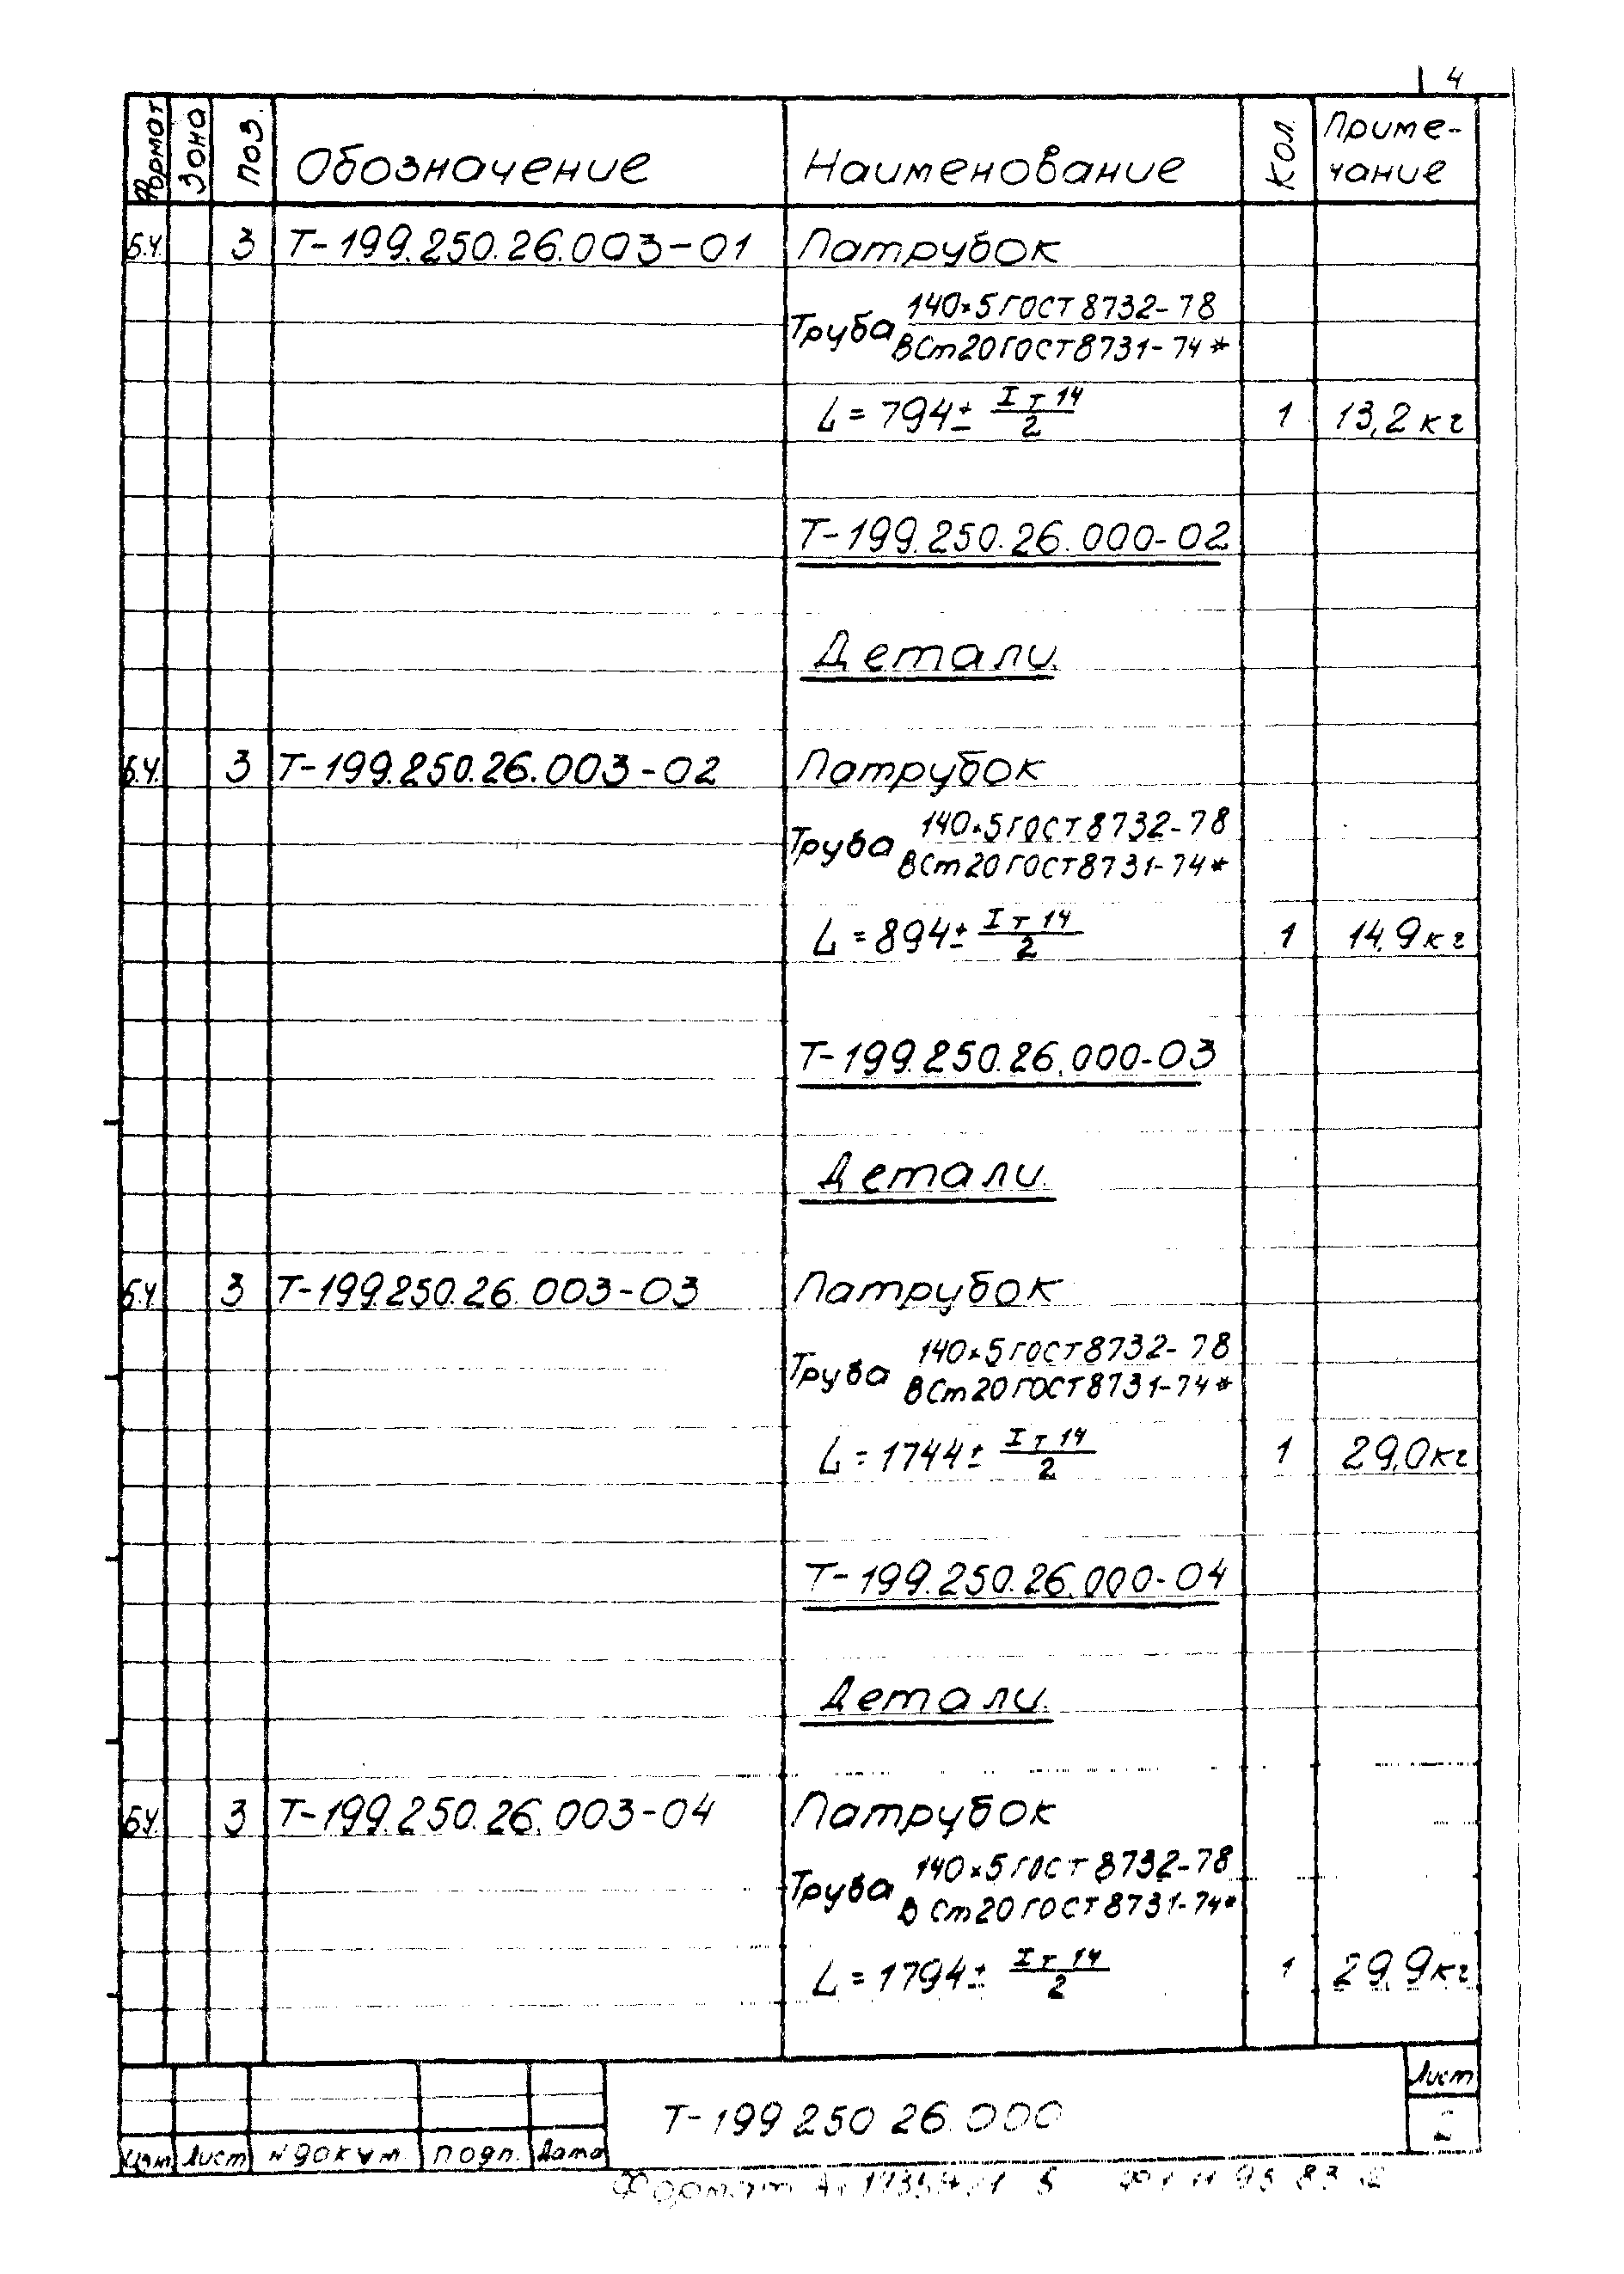 4
Формат Зона Поз. Обозначение Наименование Кол. Приме-
чание
Б.Ч. 3 Т-199.250.26.003-01 Патрубок
140×5 ГОСТ 8732-78
Труба
ВСт20 ГОСТ 8731-74*
L = 794 ± IT14
2
1 13,2 кг
Т-199.250.26.000-02
Детали.
Б.Ч. 3 Т-199.250.26.003-02 Патрубок
140×5 ГОСТ 8732-78
Труба
ВСт20 ГОСТ 8731-74*
L = 894 ± IT14
2
1 14,9 кг
Т-199.250.26.000-03
Детали.
Б.Ч 3 Т-199.250.26.003-03 Патрубок
140×5 ГОСТ 8732-78
Труба
ВСт20 ГОСТ 8731-74*
L = 1744 ± IT14
2
1 29,0 кг
Т-199.250.26.000-04
Детали.
БЧ 3 Т-199.250.26.003-04 Патрубок
140×5 ГОСТ 8732-78
Труба
ВСт20 ГОСТ 8731-74*
L = 1794 ± IT14
2
1 29,9 кг
Т-199 250 26.000
Лист
2
Изм Лист N докум. подп. Дата
Формат